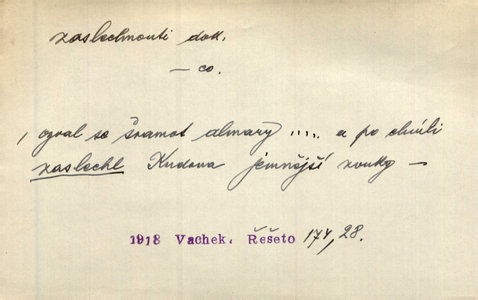 zaslechnouti dok.
— co.
, ozval se šramot almary ..... a po chvíli
zaslechl Kudrna jemnější zvuky —
1918 Vachek. Řešeto 174, 28.